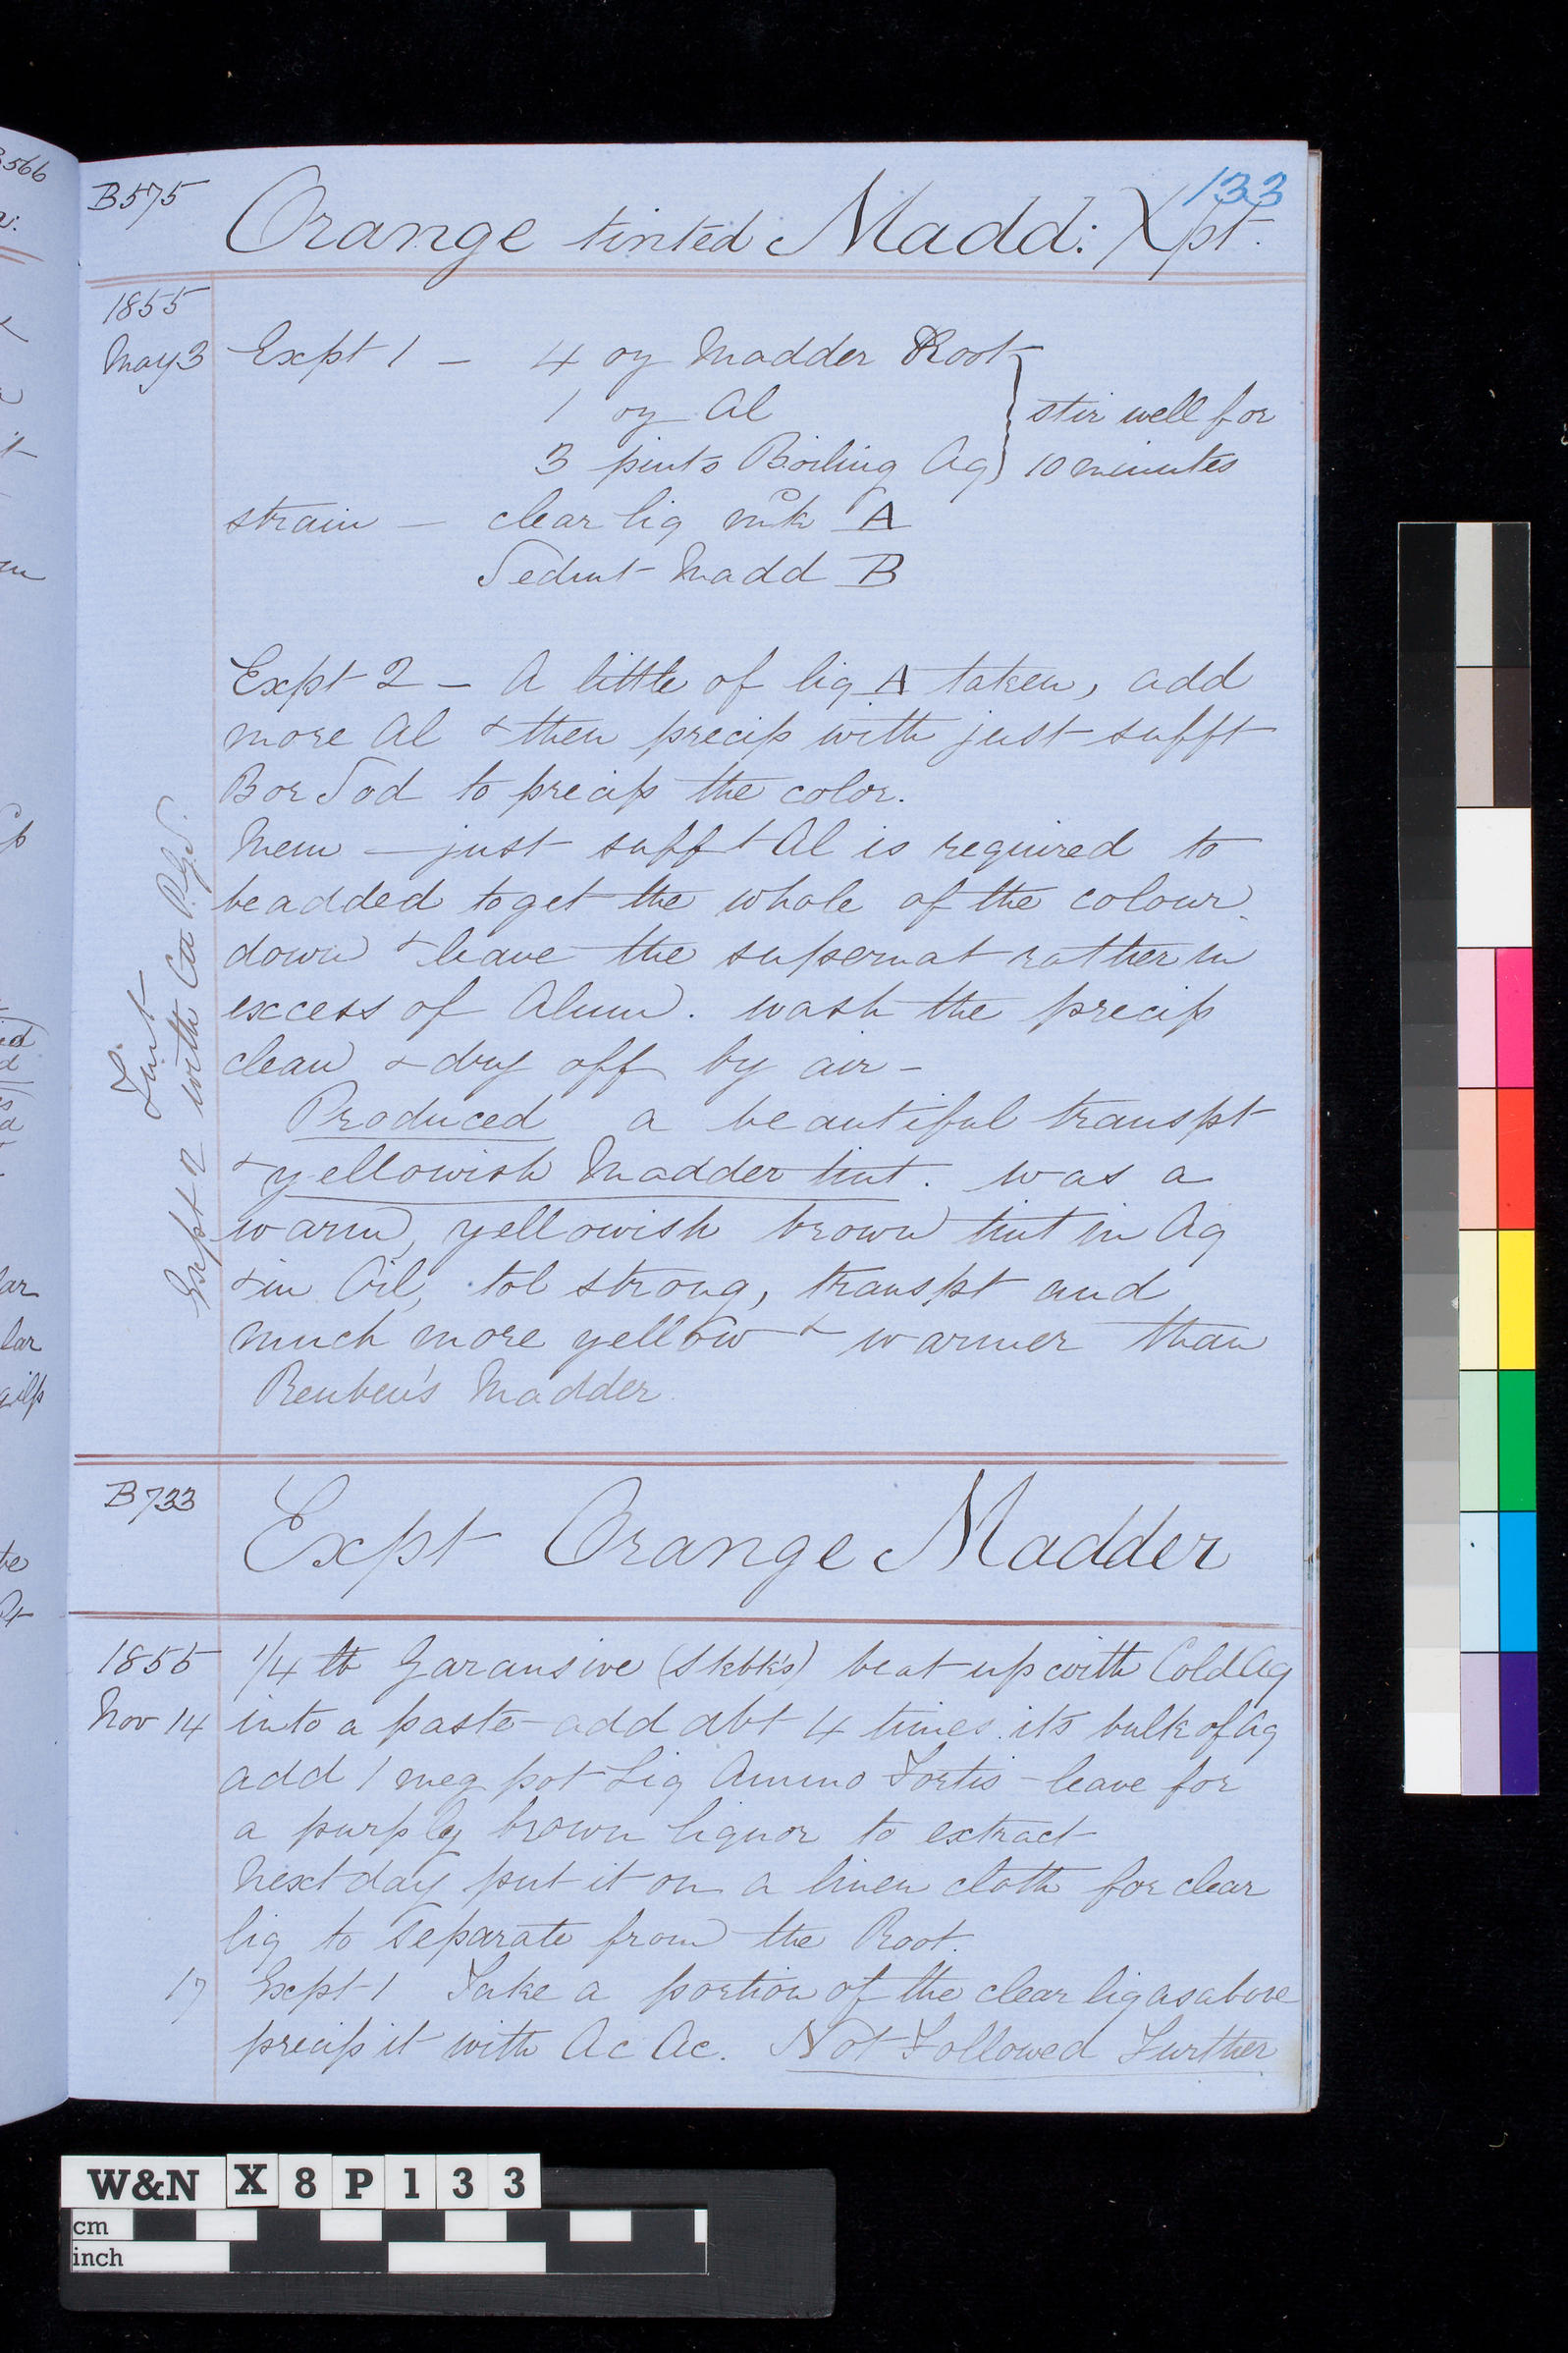 B566
133
B575 Orange tinted Madd: Xpt.
1855
May 3 Expt 1 – 4 oz Madder Root
1 oz Al
3 pints Boiling Aq
stir well for
10 minutes
strain – clear liq mk A
Sedmt Madd B
Expt 2 – A little of liq A taken, add
more Al & then precip with just sufft
Bor Sod to precip the color.
Mem – just sufft Al is required to
be added to get the whole of the colour
down & leave the supernat rather in
excess of Alum. wash the precip
clean & dry off by air –
Produced a beautiful transpt
& yellowish Madder tint. was a
warm, yellowish brown tint in Aq
& in Oil, tol strong, transpt and
much more yellow & warmer than
Reuben's Madder
Tint
Expt 2 with Ca
B733 Expt Orange Madder
1855 1/4 lb Garansive (Skbk's) beat up with Cold Aq
Nov 14 into a paste – add abt 4 times its bulk of Aq
add 1 meg pot Liq Ammo Fortis – leave for
a purply brown liquor to extract
Next day put it on a linen cloth for clear
liq to separate from the Root.
17 Expt 1 Take a portion of the clear liq as above
precip it with Ac Ac. Not Followed Further
W&N X 8 P 1 3 3
cm
inch